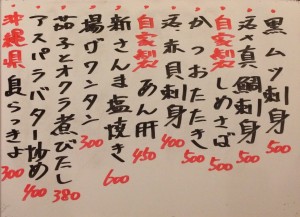 黒ムツ刺身 500
活〆真鯛刺身 500
自家製 しめさば 500
かつおたたき 500
活・赤貝刺身 400
自家製 あん肝 450
新さんま塩焼き 600
揚げワンタン 300
茄子とオクラ煮びたし 380
アスパラバター炒め 400
沖縄県 島らっきょ 300